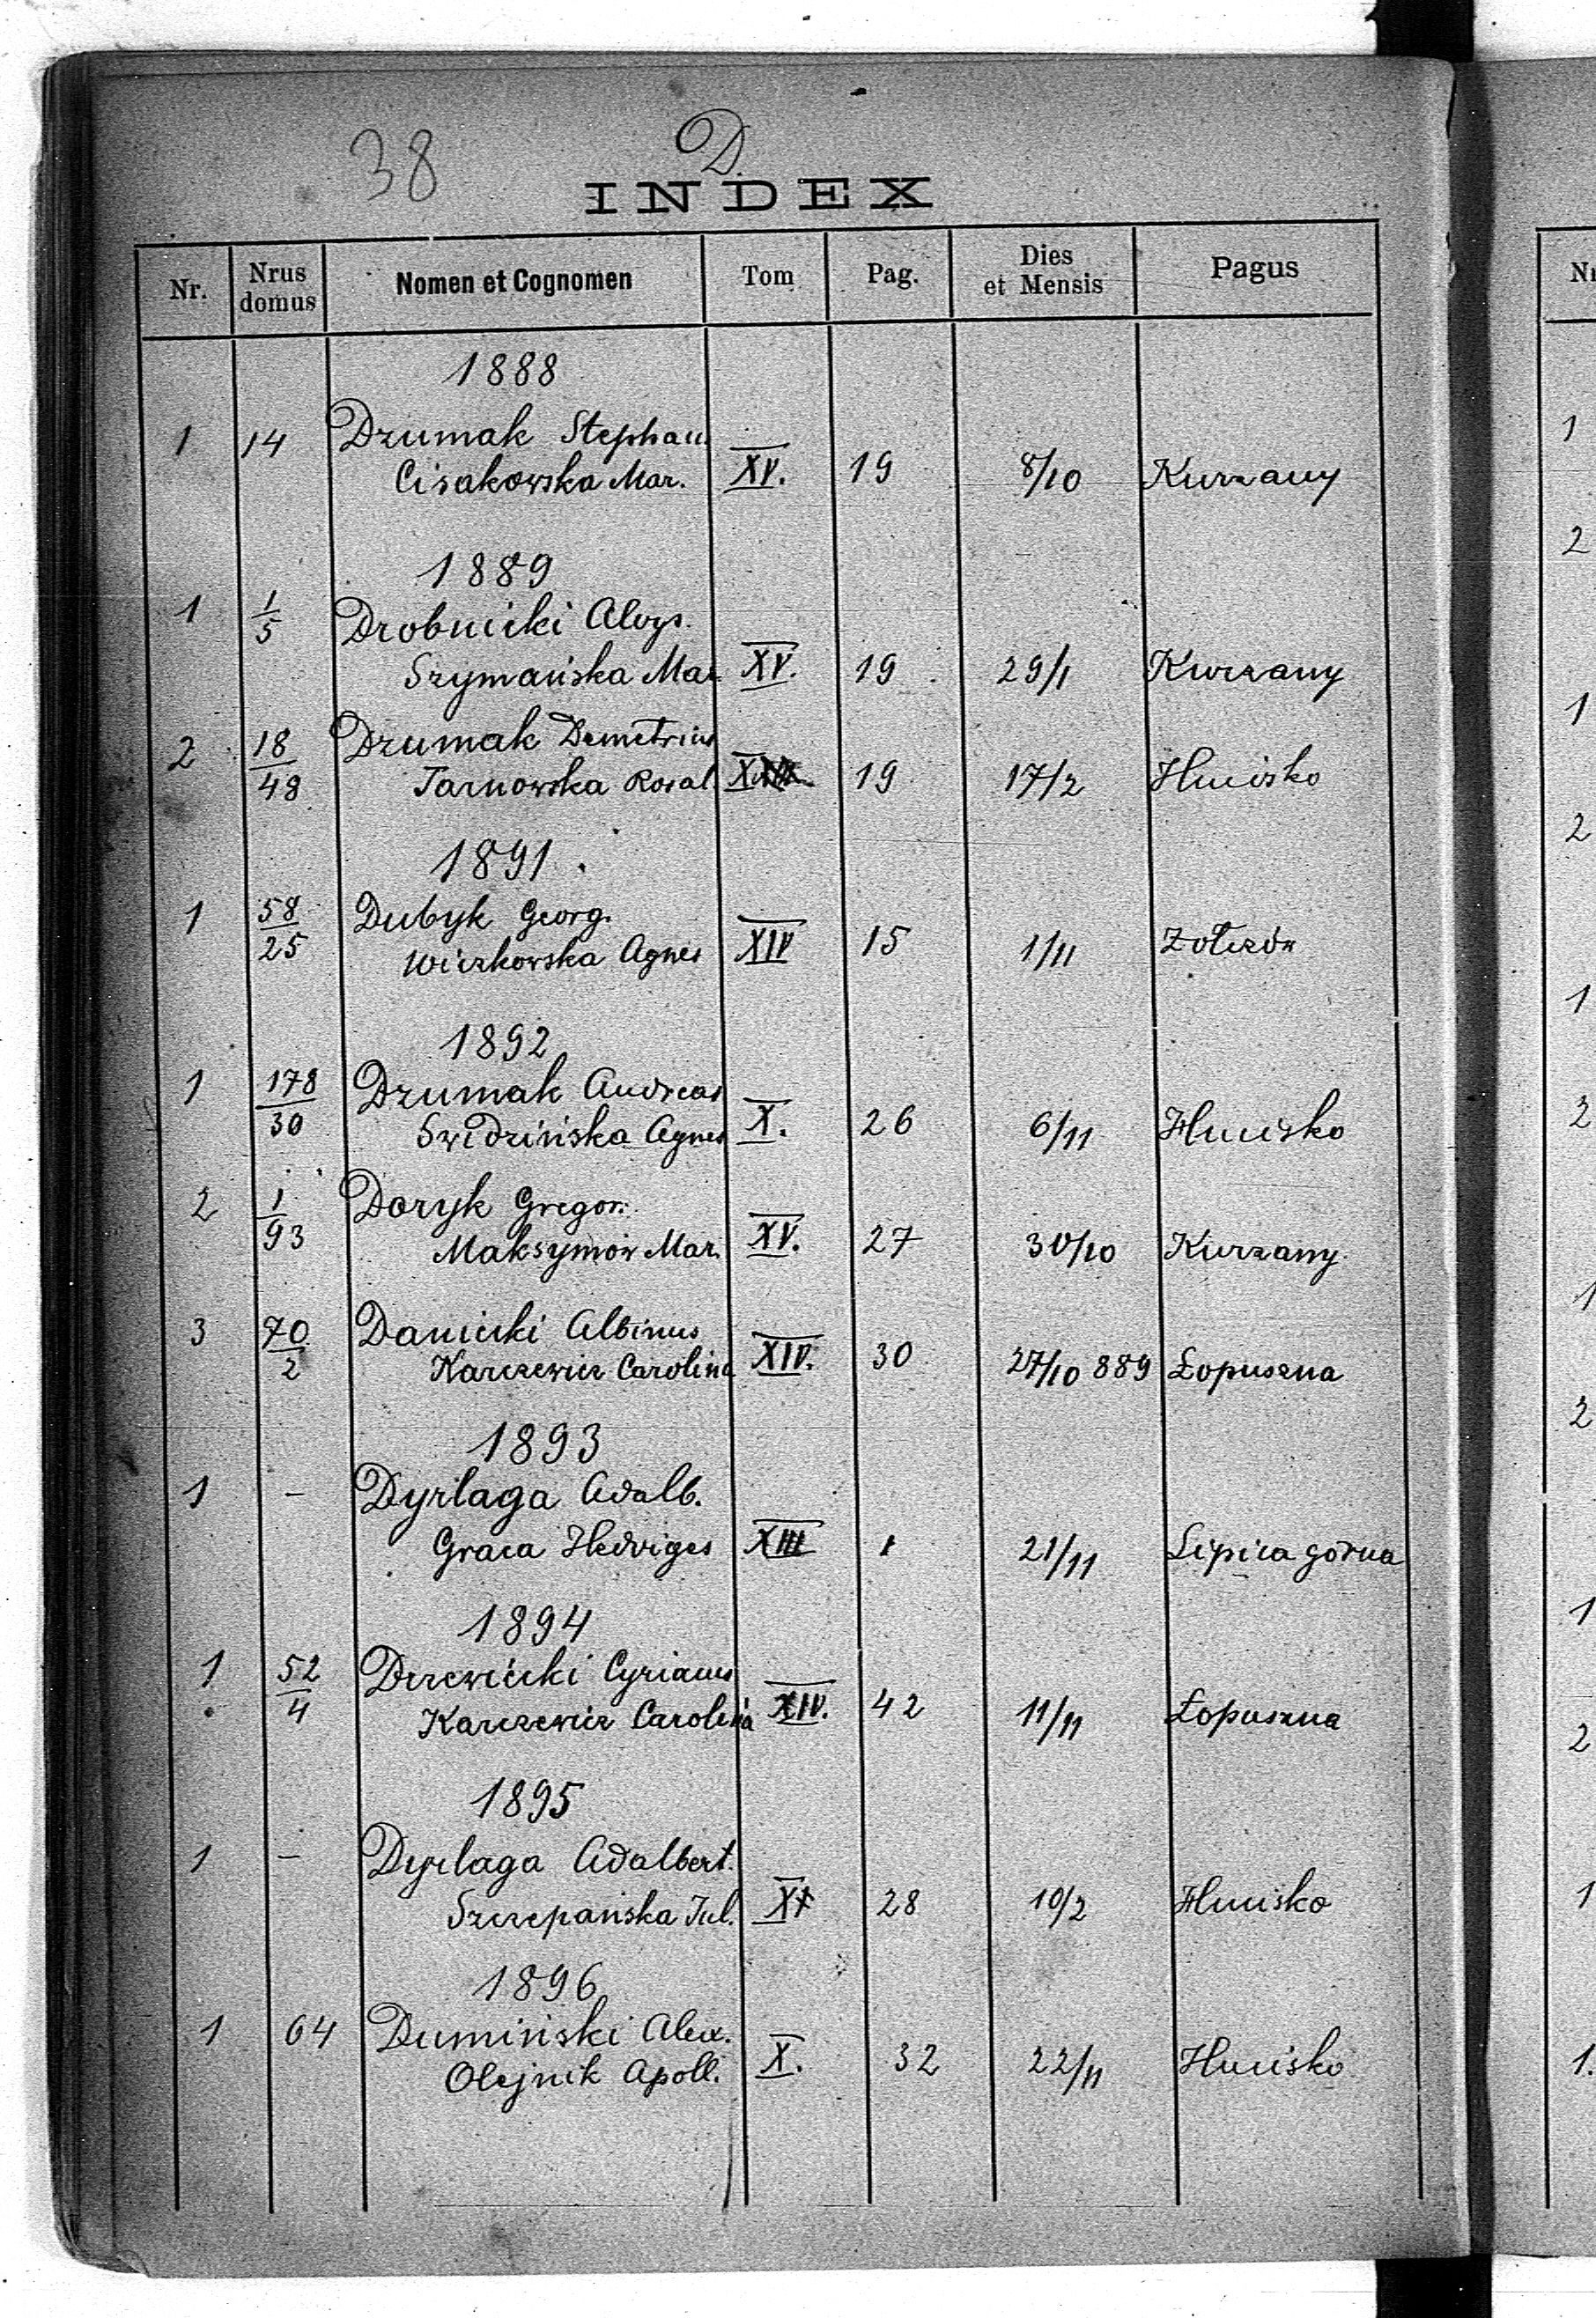 38 D.
INDEX
Nr. Nrus domus Nomen et Cognomen Tom Pag. Dies et Mensis Pagus
1888
1 14 Dzumak Stephan
Cisakowska Mar. XV. 19 8/10 Kurzany
1889
1 1/5 Drobnicki Aloys.
Szymańska Mar XV. 19 29/1 Kurzany
2 18/48 Dzumak Demetrius
Tarnowska Rosal. X 19 17/2 Hucisko
1891.
1 58/25 Dubyk Georg.
Wiczkowska Agnes XIV 15 1/11 Zołczów
1892
1 178/30 Dzumak Andreas
Swidzińska Agnes X. 26 6/11 Hucisko
2 1/93 Doryk Gregor.
Maksymów Mar. XV. 27 30/10 Kurzany.
3 70/2 Danicki Albinus
Karczewicz Carolina XIV. 30 27/10 889 Łopuszna
1893
1 - Dyrlaga Adalb.
Graca Hedviges XIII 1 21/11 Lipica gorna
1894
1 52/4 Derewicki Cyrianus
Karczewicz Carolina XIV. 42 11/11 Łopuszna
1895
1 - Dyrlaga Adalbert.
Szczepańska Jul. X 28 10/2 Hucisko
1896
1 64 Dumiński Alex.
Olejnik Apoll. X. 32 22/11 Hucisko
Nr
1
2
1
2
1
2
1
2
1
2
1
1.